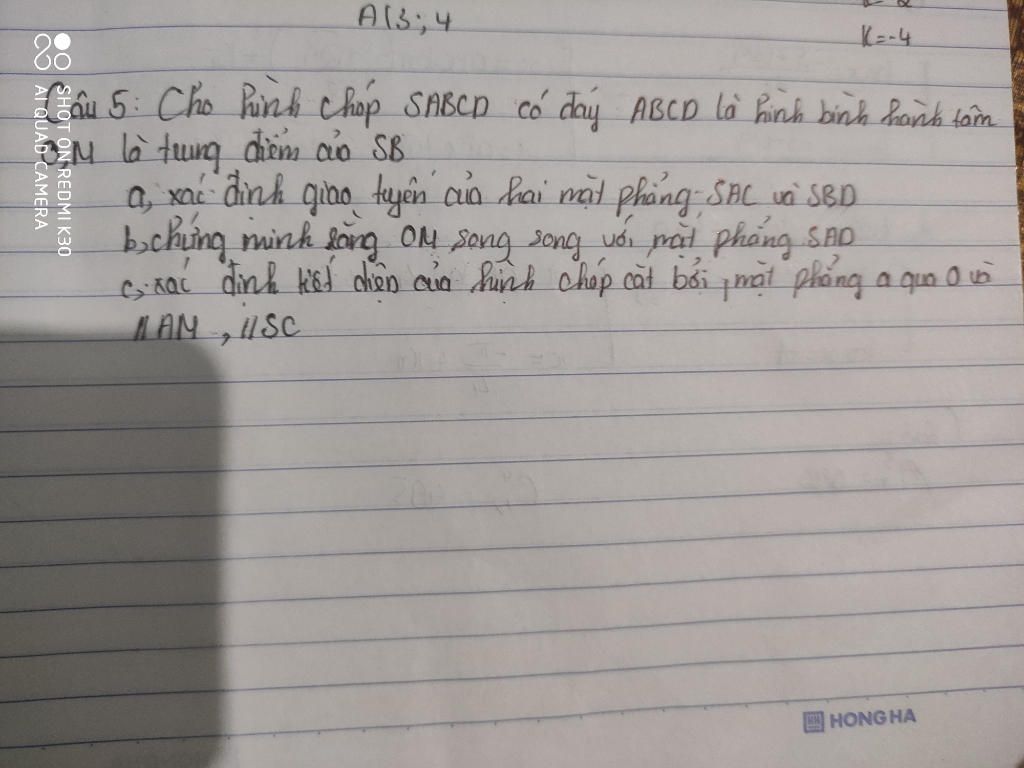 A(3; 4
K=-4
Câu 5: Cho hình chóp SABCD có đáy ABCD là hình bình hành tâm
O, M là trung điểm của SB
a, xác định giao tuyến của hai mặt phẳng SAC và SBD
b, chứng minh rằng OM song song với mặt phẳng SAD
c, xác định tiết diện của hình chóp cắt bởi mặt phẳng a qua O và
// AM, // SC
SHOT ON REDMI K30
AI QUAD CAMERA
HONG HA